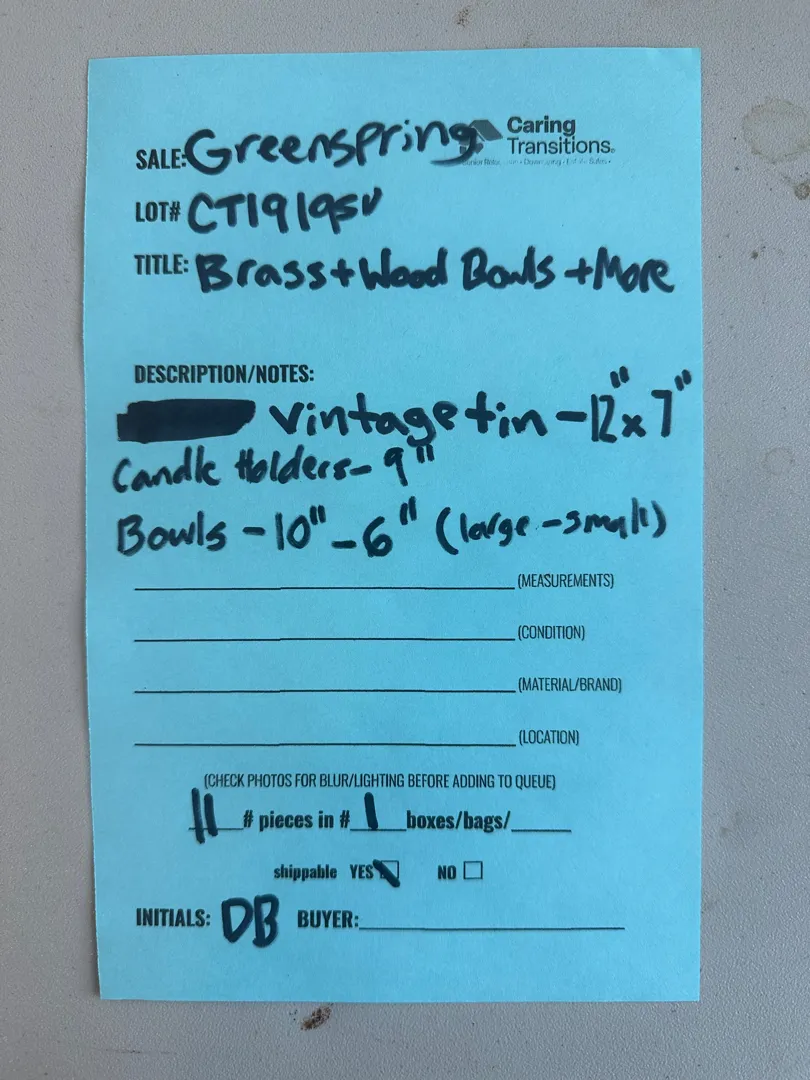 Caring
SALE: Greenspring Transitions®
LOT# CT1919SV
TITLE: Brass + Wood Bowls + More
DESCRIPTION/NOTES:
vintage tin - 12" x 7"
Candle Holders - 9"
Bowls - 10" - 6" (large - small)
(MEASUREMENTS)
(CONDITION)
(MATERIAL/BRAND)
(LOCATION)
(CHECK PHOTOS FOR BLUR/LIGHTING BEFORE ADDING TO QUEUE)
11 # pieces in # 1 boxes/bags/
shippable YES NO
INITIALS: DB BUYER: